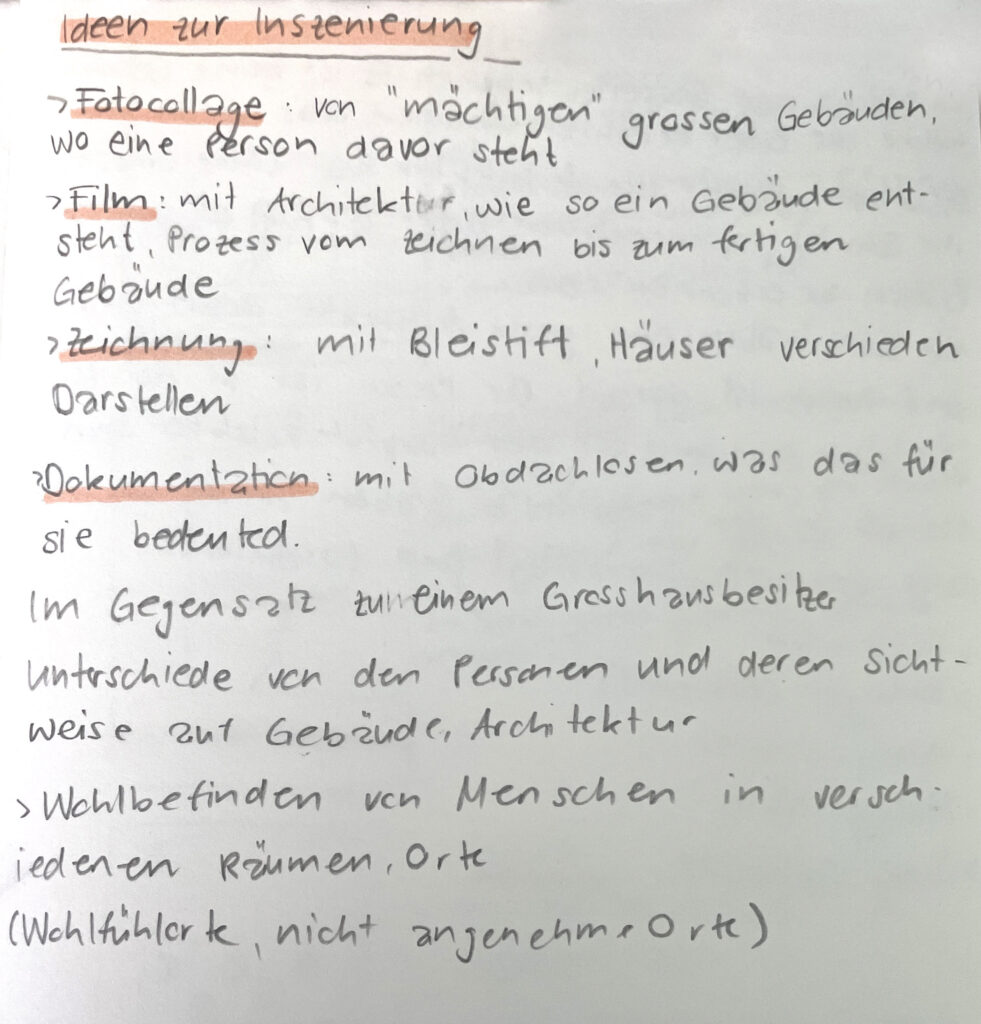 Ideen zur Inszenierung
> Fotocollage : von "mächtigen" grossen Gebäuden,
wo eine Person davor steht
> Film : mit Architektur, wie so ein Gebäude ent-
steht, Prozess vom zeichnen bis zum fertigen
Gebäude
> Zeichnung : mit Bleistift, Häuser verschieden
Darstellen
> Dokumentation : mit Obdachlosen, was das für
sie bedeuted.
Im Gegensatz zu einem Grosshausbesitzer
Unterschiede von den Personen und deren Sicht-
weise auf Gebäude, Architektur
> Wohlbefinden von Menschen in versch-
iedenen Räumen, Orte
(Wohlfühlorte, nicht angenehme Orte)